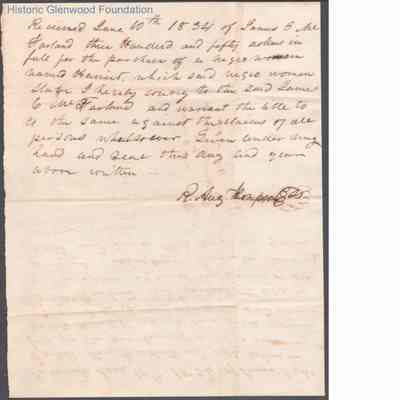 Historic Glenwood Foundation
Received June 10th 1834 of James C Mc
Farland three Hundred and fifty dollars in
full for the purchase of a negro woman
named Harriet, which said negro woman
slave I hereby convey to the said James
C McFarland and warrant the title to
the same against the claims of all
persons whatsoever Given under my
hand and seal this day and year
above written
R. Aug.